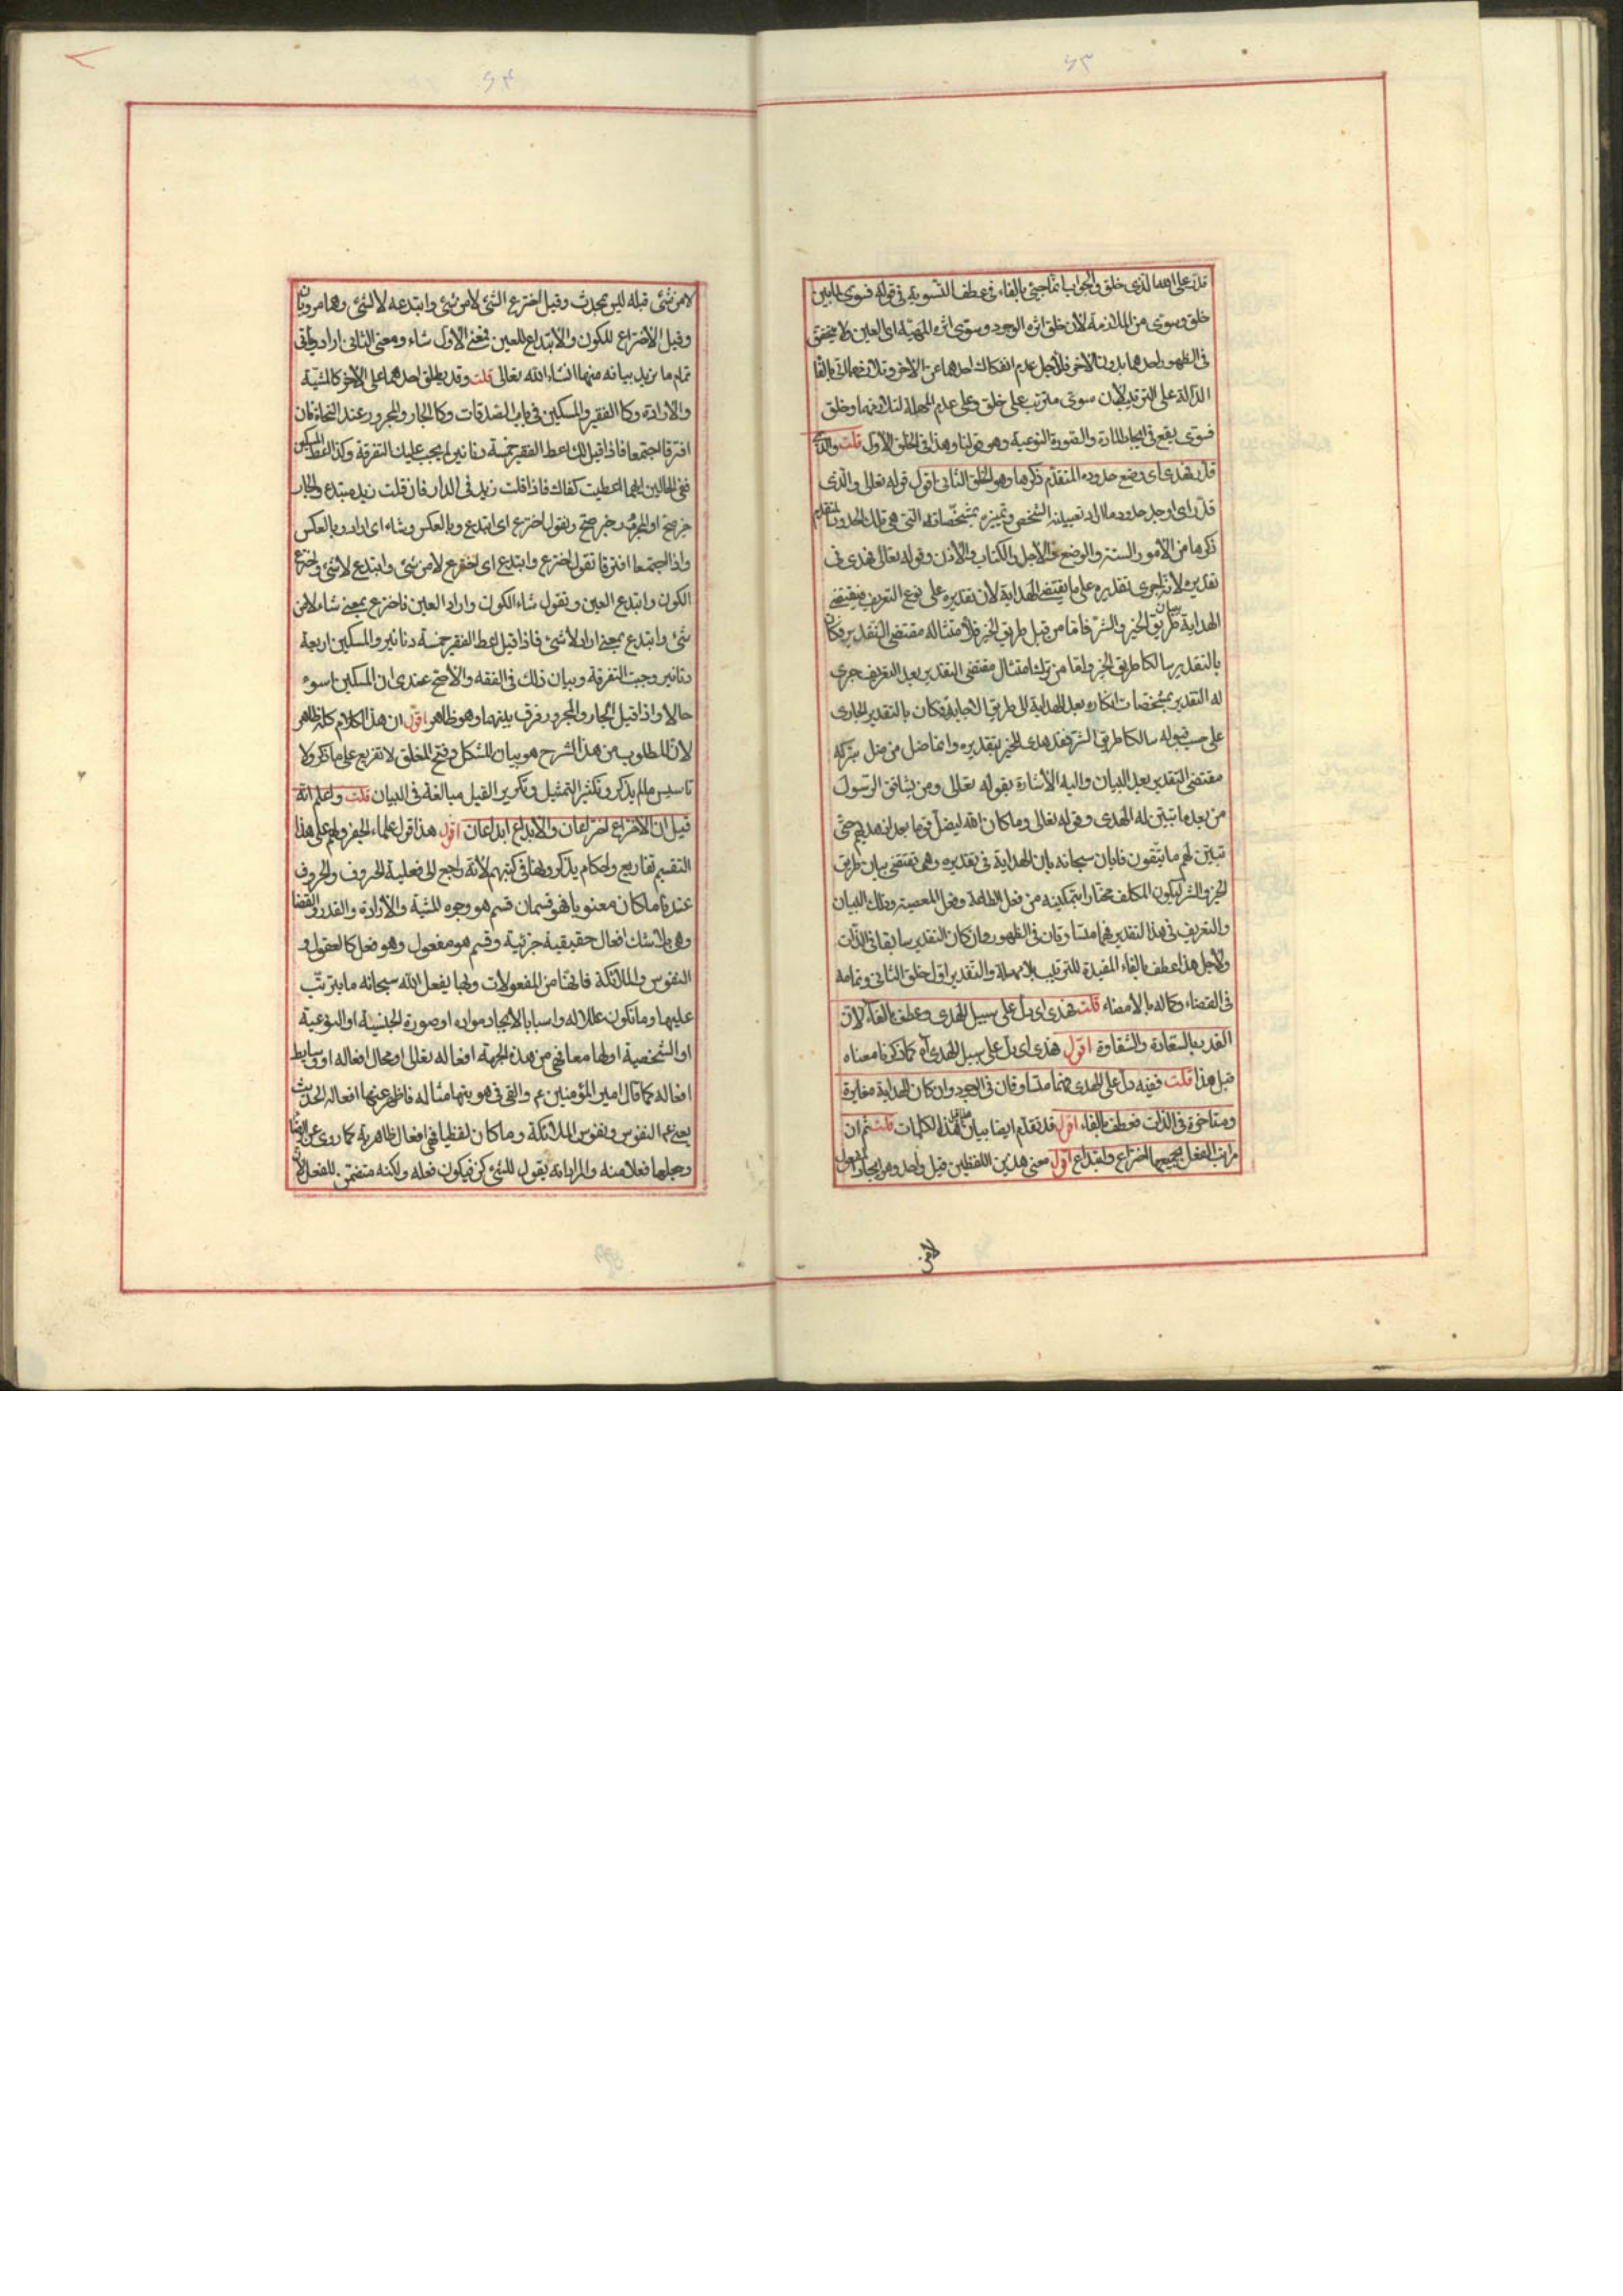 ٤٣
قدر على انها الذى خلق والجواب انما جیئ بالفاء فى عطف التسوية فى قوله فسوى لما بين
خلق وسوى من الملازمة لان خلق اثره الوجود وسوى اثره المهيّة اى العين فلا يتحقق
فى الظهور احدهما بدون الاخر فلاجل عدم انفكاك احدهما عن الاخر وتلازمهما اتى بالفاء
الدالة على الترتيب لان سوى مترتب على خلق وعلى عدم المهلة لتلازمهما وخلق
فسوى يقع فى ايجاد المادة والصورة النوعية وهو قولنا وهذا فى الخلق الاول قلت والذى
قدر فهدى اى وضع حدوده المتقدم ذكرها وهو الخلق الثانى اقول قوله تعالى والذى
قدر اى اوجد حدود ما اراد تعيينه الشخصى وتميزه بمشخصاته التى هى تلك الحدود المتقدم
ذكرها من الأمور الستة والوضع والاجل والكتاب والأذن وقوله تعالى فهدى فى
تقديره لانه اجرى تقديره على ما يقتضى الهداية لان تقديره على نوع التعريف فيقتضى
الهداية بيان طريق الخير والشر فاما من قبل طريق الخير فلامتثاله مقتضى التقدير فكان
بالتقدير سالكا طريق الخير واما من ترك امتثال مقتضى التقدير بعد التعريف جرى
له التقدير بمشخصات انكاره بعد الهداية الى طريق الاجابة فكان بالتقدير الجارى
على حسب قبوله سالكا طريق الشر فقد هدى للخير بتقديره وانما ضل من ضل بتركه
مقتضى التقدير بعد البيان واليه الأشارة بقوله تعالى ومن يشاقق الرسول
من بعد ما تبين له الهدى وقوله تعالى وما كان الله ليضل قوما بعد اذ هديهم حتى
تبيّن لهم ما يتّقون فابان سبحانه بان الهداية فى تقديره وهى تقتضى بيان طريق
الخير والشر ليكون المكلف مختارا بتمكينه من فعل الطاعة وفعل المعصية وذلك البيان
والتعريف فى هذا التقدير فهما متساوقان فى الظهور وان كان التقدير سابقا فى الذات
ولأجل هذا عطف بالفاء المفيدة للترتيب بلا مهملة والتقدير اول خلق الثانى وتمامه
فى القضاء وكماله بالامضاء قلت فهدى اى دل على سبيل الهدى وعطف بالفاء لان
القدر بالسعادة والشقاوة اقول فهدى اى دل على سبيل الهدى اه كما ذكرنا معناه
قبل هذا قلت ففيه دل على الهدى فهما متساوقان فى الوجود وان كان الهداية مغايرة
ومتاخرة فى الذات فعطف بالفاء اقول قد تقدم ايضا بيان هذا الكلمات قلت ثم ان
مراتب الفعل بجميعها اختراع وابتداع اقول معنى هذين اللفظين قيل واحد وهو ايجاد المفعول
لامن
٤٤
لامن شئ قبله ليس بمحدث وقيل اخترع الشئ لامن شئ وابتدعه لا لشئ وهما مرويان
وقيل الأختراع للكون والأبتداع للعين فمعنى الأول شاء ومعنى الثانى اراد وياتى
تمام ما نريد بيانه منهما انشاء الله تعالى قلت وقد يطلق احدهما على الاخر كالمشيّة
والأرادة وكالفقير والمسكين فى باب الصدقات وكالجار والمجرور عند النحاة فان
افترقا اجتمعا فاذا قيل لك اعط الفقير خمسة دنانير لم يجب عليك التفرقة وكذا اعط المسكين
ففى الحالين ايهما اعطيت كفاك فاذا قلت زيد فى الدار فان قلت زيد مبتدء والجار
خبر صح او المجرور خبر صح وتقول اخترع اى ابتدع وبالعكس وشاء اى اراد وبالعكس
واذا اجتمعا افترقا تقول اخترع وابتدع اى اخترع لامن شئ وابتدع لا لشئ واخترع
الكون وابتدع العين وتقول شاء الكون واراد العين فاخترع بمعنى شاء لامن
شئ وابتدع بمعنى اراد لا لشئ فاذا قيل اعط الفقير خمسة دنانير والمسكين اربعة
دنانير وجبت التفرقة وبيان ذلك فى الفقه والأصح عندى ان المسكين اسوء
حالا واذا قيل الجار والمجرور فرق بينهما وهو ظاهر اقول ان هذا الكلام كله ظاهر
لان المطلوب من هذا الشرح هو بيان المشكل وفتح المغلق لا تفريع على ما ذكر ولا
تاسيس ما لم يذكر وتكثير التمثيل وتكرير القيل مبالغة فى البيان قلت واعلم انه
قيل ان الأختراع اختراعان والأبداع ابداعان اقول هذا قول علماء الجفر ولهم على هذا
التقسيم تفاريع واحكام يذكرونها فى كتبهم لأنه راجع الى فعلية الحروف والحروف
عندنا ما كان معنويا فهو قسمان قسم هو وجوه المشية والأرادة والقدر والقضا
وهى بلا شك افعال حقيقية جزئية وقسم هو مفعول وهو فعل كالعقول و
النفوس والملائكة فانها من المفعولات وبها يفعل الله سبحانه ما يترتّب
عليها وما تكون عللا له واسبابا لايجاد مواده او صورة الجنسية او النوعية
او الشخصية او لها معا فهى من هذه الجهة افعاله تعالى او محال افعاله او وسايط
افعاله كما قال امير المؤمنين ع والقى فى هويتها مثاله فاظهر عنها افعاله الحديث
يعنى عم النفوس ونفوس الملائكة وما كان لفظيا فهى افعال ظاهرية كما روى عن الرضا
وجعلها فعلا منه والمراد انه يقول للشئ كن فيكون فعله ولكنه متضمن للفعل